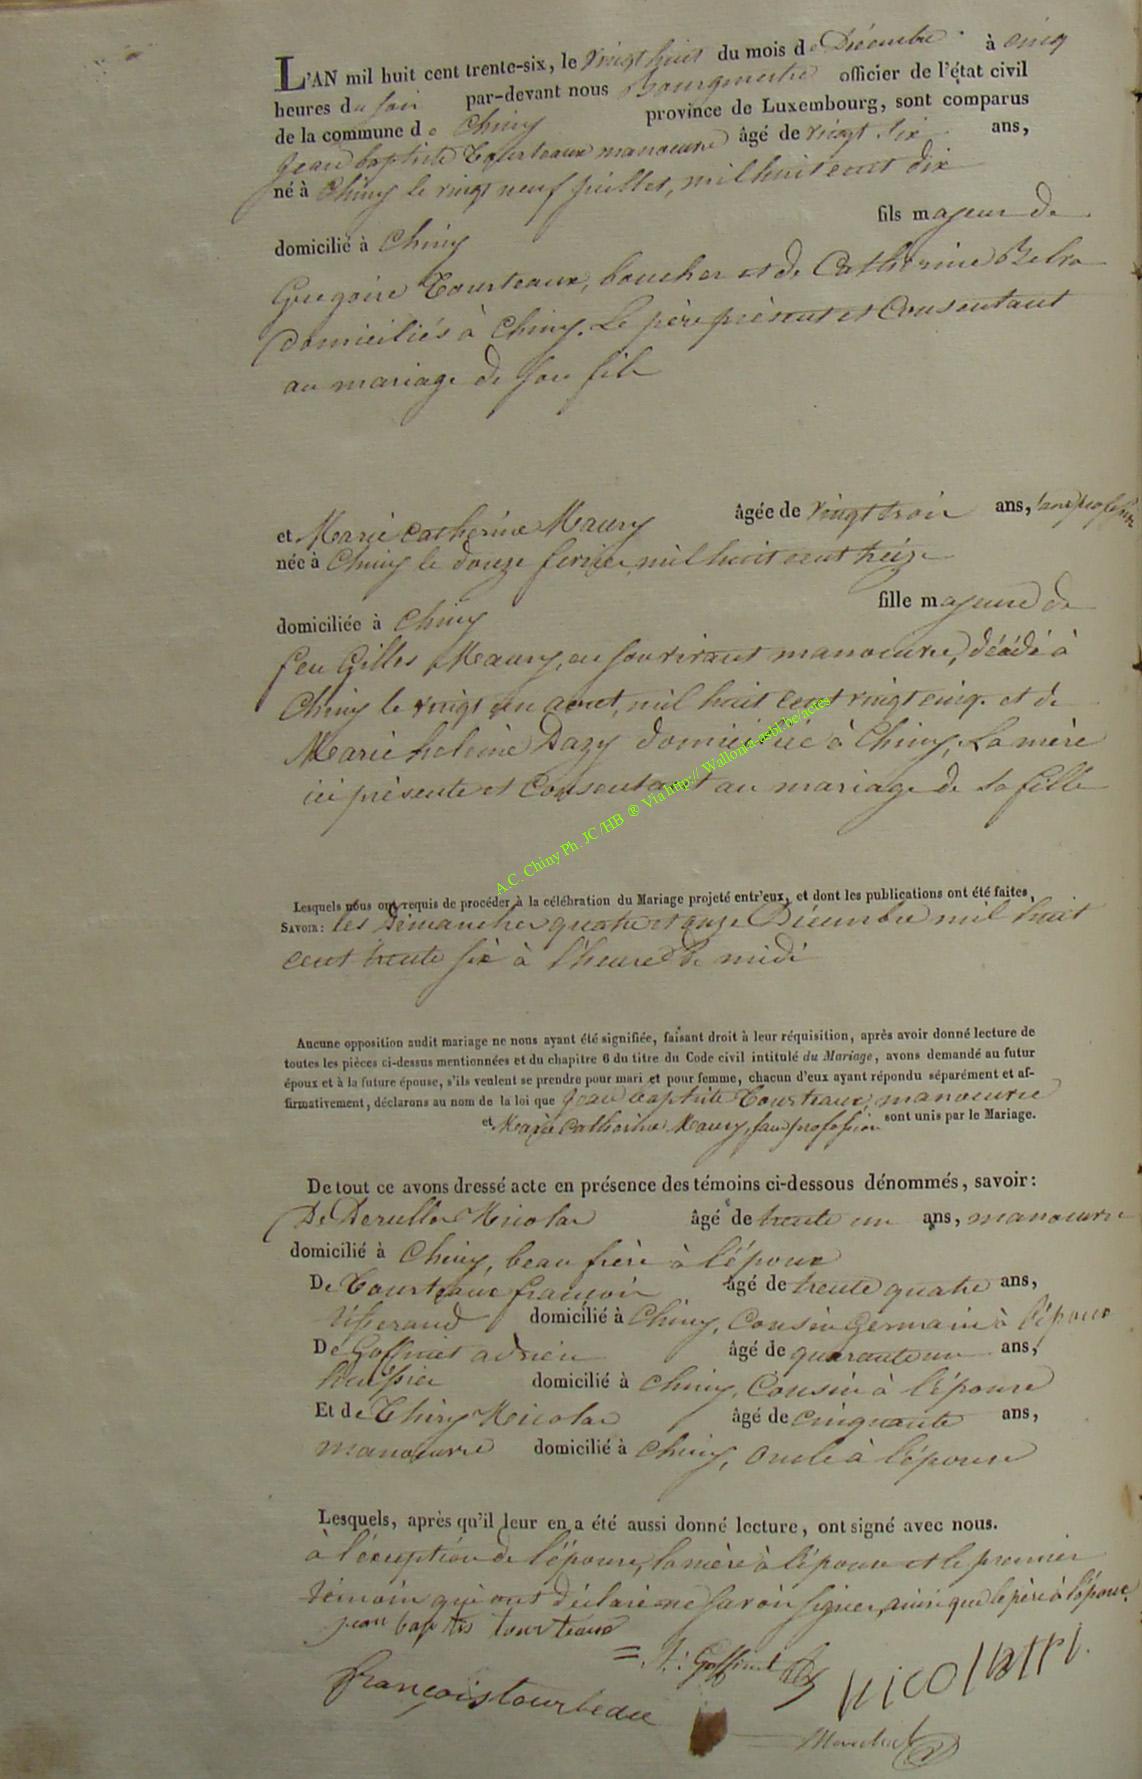 L'AN mil huit cent trente-six, le vingt huit du mois de Décembre à cinq
heures du soir par-devant nous Bourgmestre officier de l'état civil
de la commune de Chiny province de Luxembourg, sont comparus
Jean baptiste Tourteaux manoeuvre âgé de vingt six ans,
né à Chiny le vingt neuf juillet, mil huit cent dix
domicilié à Chiny fils majeur de
Gregoire Tourteaux, boucher et de Catherine
domiciliés à Chiny. Le père présent et Consentant
au mariage de son fils
et Marie Catherine Maury âgée de vingt trois ans, sans profession
née à Chiny le douze fevrier mil huit cent treize
domiciliée à Chiny fille majeure de
feu Gilles Maury, en son vivant manoeuvre, décédé à
Chiny le vingt un aout, mil huit cent vingt cinq. et de
Marie heleine Dazy domiciliée à Chiny, La mère
ici présente et Consentant au mariage de sa fille
A.C. Chiny Ph. JC/HB ® Via http:// Wallonia-asbl.be/actes
Lesquels nous ont requis de procéder à la célébration du Mariage projeté entr'eux, et dont les publications ont été faites,
SAVOIR: les Dimanches quatre et onze Décembre mil huit
cent trente six à l'heure de midi
Aucune opposition audit mariage ne nous ayant été signifiée, faisant droit à leur réquisition, après avoir donné lecture de
toutes les pièces ci-dessus mentionnées et du chapitre 6 du titre du Code civil intitulé du Mariage, avons demandé au futur
époux et à la future épouse, s'ils veulent se prendre pour mari et pour femme, chacun d'eux ayant répondu séparément et af-
firmativement, déclarons au nom de la loi que Jean baptiste Tourteaux, manoeuvre
et Marie Catherine Maury, sans profession sont unis par le Mariage.
De tout ce avons dressé acte en présence des témoins ci-dessous dénommés, savoir:
De Nicolas âgé de trente un ans, manoeuvre
domicilié à Chiny, beau frère à l'époux
De Tourteaux françois âgé de trente quatre ans,
tisserand domicilié à Chiny, Cousin Germain à l'époux
De Goffinet adrien âgé de quarante un ans,
huissier domicilié à Chiny, Cousin à l'épouse
Et de Thiry Nicolas âgé de cinquante ans,
manoeuvre domicilié à Chiny, oncle à l'épouse
Lesquels, après qu'il leur en a été aussi donné lecture, ont signé avec nous.
à l'exception de l'épouse, la mère à l'épouse et le premier
témoin qui ont déclaré ne savoir signer, ainsi que le père à l'époux.
jean baptis tourteaux
= A. Goffinet
françois tourteaux